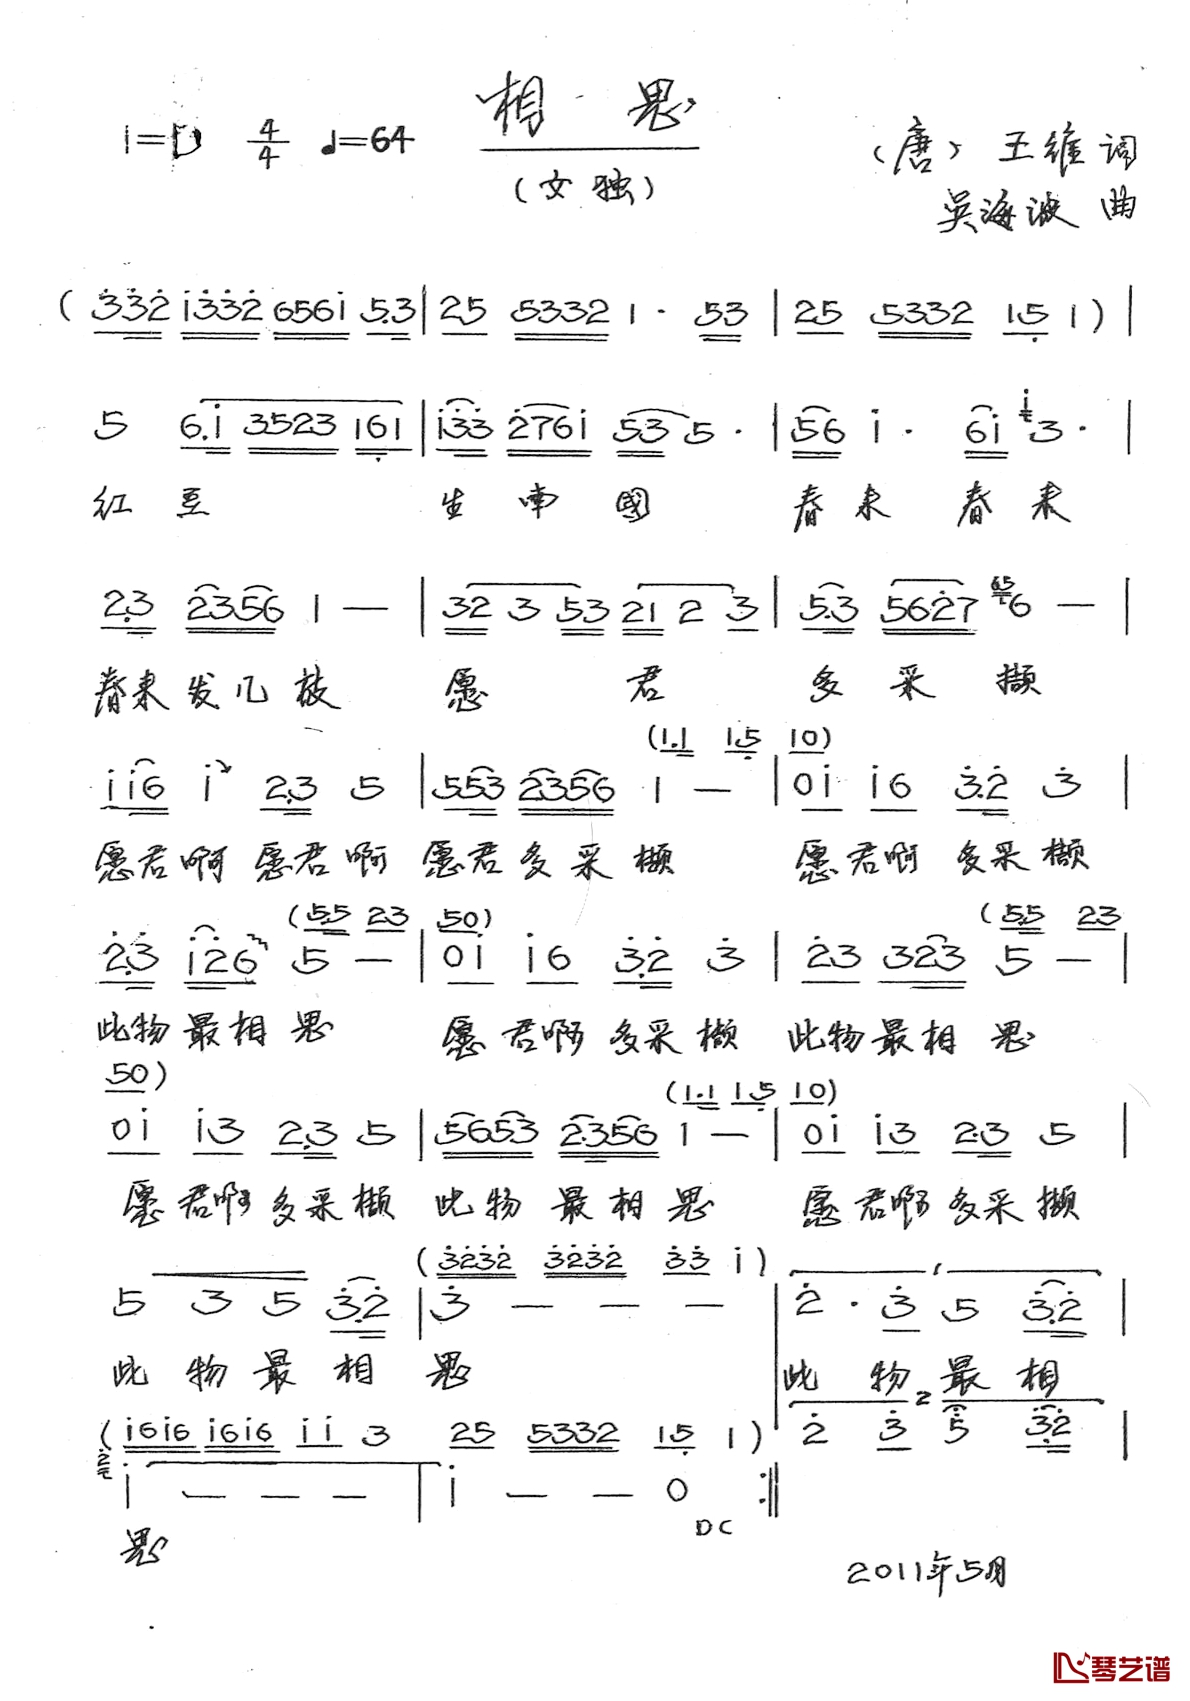 相 思
1=D 4/4 ♩=64
(女独)
(唐) 王维 词
吴海波 曲
( 3̇3̇2̇ 1̇3̇3̇2̇ 6561̇ 5.3 | 25 5332 1· 53 | 25 5332 15̣ 1 ) |
5 6.1̇ 3523 16̣1 | 1̇3̇3̇ 2̇761̇ 53 5· | 56 1̇· 61̇ 1̇3· |
红 豆 生 南 國 春 来 春 来
2.3 2356 1 — | 32 3 53 21 2 3 | 5.3 562̇7 65 6 — |
春来 发 几 枝 愿 君 多 采 撷
(1.1 15̣ 10)
1̇1̇6 1̇ 2.3 5 | 553 2356 1 — | 01̇ 1̇6 3̇.2̇ 3̇ |
愿君啊 愿君啊 愿君多采撷 愿君啊 多采撷
(5.5 23 50) (5.5 23
2̇.3̇ 1̇2̇6 5 — | 01̇ 1̇6 3̇.2̇ 3̇ | 2̇3 323 5 — |
此物最相思 愿君啊 多采撷 此物最相思
50) (1.1 15̣ 10)
01̇ 1̇3 2.3 5 | 5653 2.356 1 — | 01̇ 1̇3 2.3 5 |
愿君啊多采撷 此物最相思 愿君啊多采撷
(3̇2̇3̇2̇ 3̇2̇3̇2̇ 3̇3̇ 1̇)
5 3 5 3̇.2̇ | 3̇ — — — | 2̇· 3̇ 5 3̇.2̇ |
此物最相 思 此 物 最 相
(1̇61̇6 1̇61̇6 1̇1̇ 3 25 5332 15̣ 1) 2̇ 3̇ 2 5̇ 3̇2̇ |
2̇ 1̇ — — — | 1̇ — — 0 :‖
DC
思
2011年5月
琴艺谱